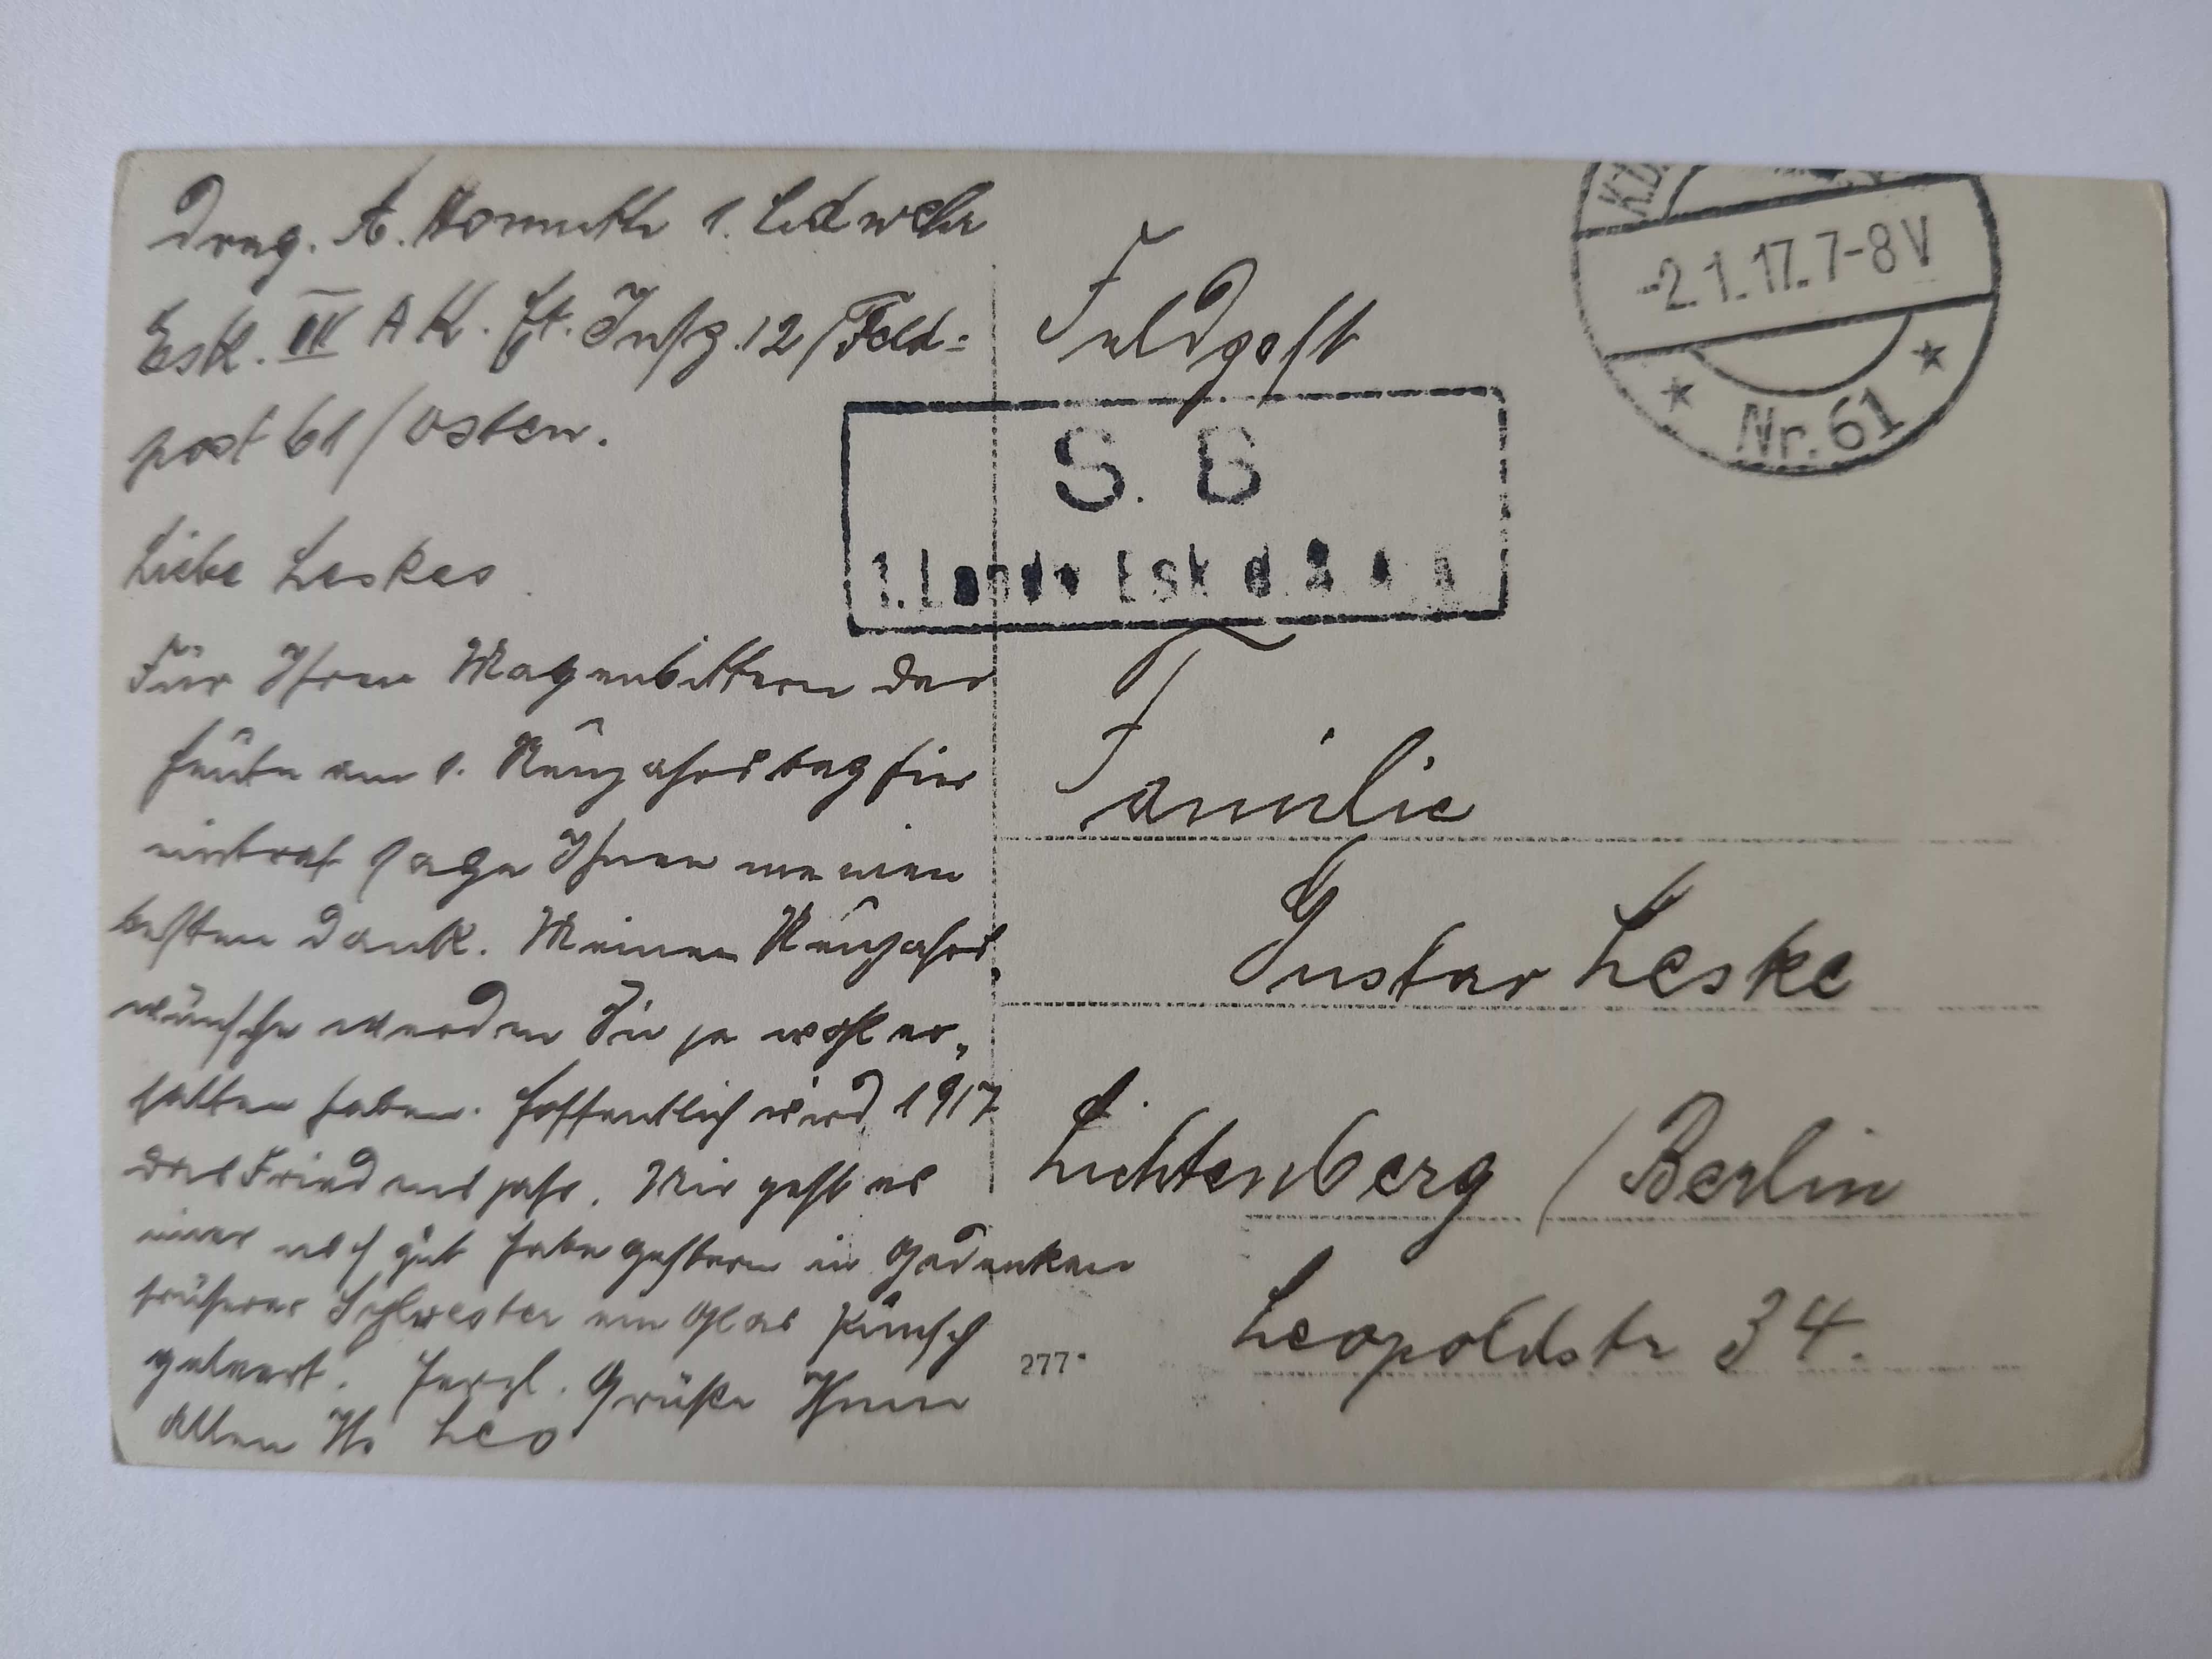 Drag. A. Hormuth 1. Ldwehr
Esk. III A K. Et. Insp. 12/Feld=
post 61/Osten.
Liebe Leskes
Für Ihren Magenbittern der
heute am 1. Neujahrstag hier
eintraf sage Ihnen meinen
besten Dank. Meinen Neujahrs
wünsche werden Sie ja wohl er„
halten haben. Hoffentlich wird 1917
das Friedensjahr. Mir geht es
imer noch gut habe gestern in Gedenken
früherer Sylvester ein Glas Punsch
geleert. Herzl. Grüße Ihnen
Allen Ihr Leo
Feldpost
K.D.
-2.1.17.7-8V
* Nr. 61 *
S. B
1. Landw Esk d
Familie
Gustav Leske
Lichtenberg / Berlin
Leopoldstr 34.
277